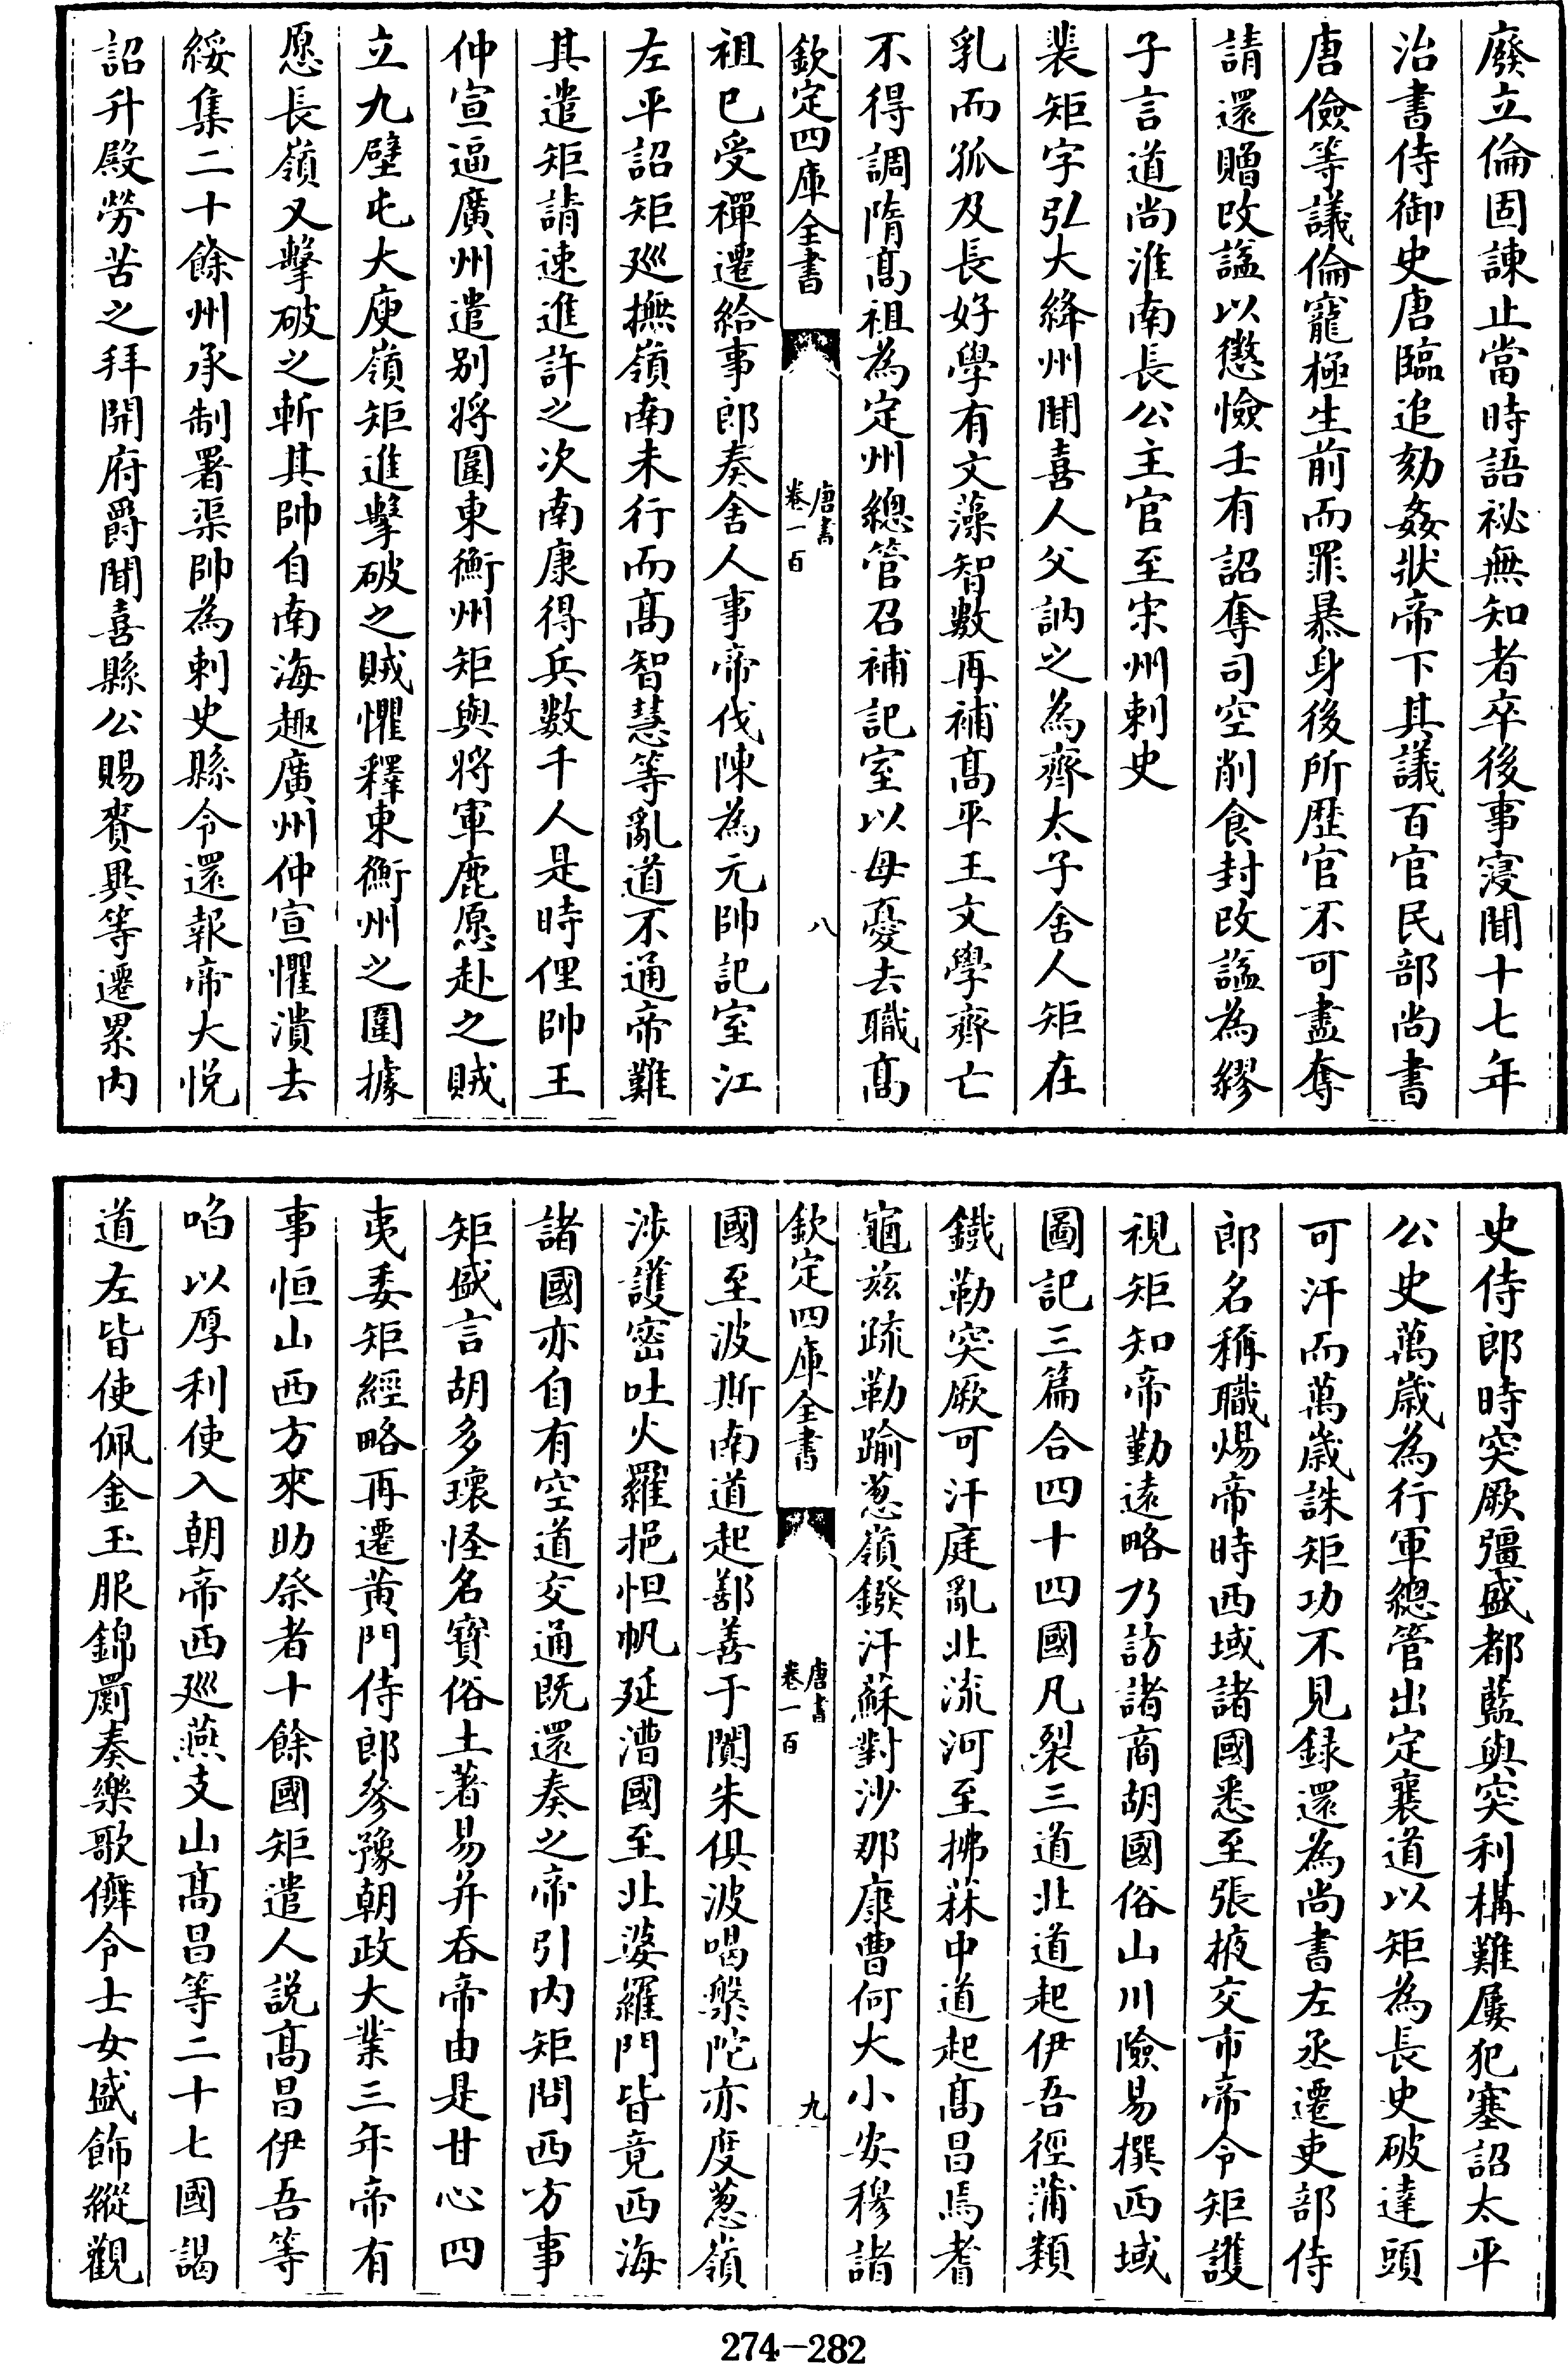 廢立倫固諫止當時語祕無知者卒後事寖聞十七年
治書侍御史唐臨追劾姦狀帝下其議百官民部尚書
唐儉等議倫寵極生前而罪暴身後所歷官不可盡奪
請還贈改諡以懲憸壬有詔奪司空削食封改諡為繆
子言道尚淮南長公主官至宋州刺史
裴矩字弘大絳州聞喜人父訥之為齊太子舍人矩在
乳而孤及長好學有文藻智數再補髙平王文學齊亡
不得調隋髙祖為定州總管召補記室以母憂去職髙
欽定四庫全書
唐書
卷一百
八
祖已受禪遷給事郎奏舍人事帝伐陳為元帥記室江
左平詔矩廵撫嶺南未行而髙智慧等亂道不通帝難
其遣矩請速進許之次南康得兵數千人是時俚帥王
仲宣逼廣州遣别將圍東衡州矩與將軍鹿愿赴之賊
立九壁屯大庾嶺矩進擊破之賊懼釋東衡州之圍據
愿長嶺又擊破之斬其帥自南海趣廣州仲宣懼潰去
綏集二十餘州承制署渠帥為刺史縣令還報帝大悅
詔升殿勞苦之拜開府爵聞喜縣公賜賚異等遷累内
史侍郎時突厥彊盛都藍與突利構難屢犯塞詔太平
公史萬歲為行軍總管出定襄道以矩為長史破達頭
可汗而萬歲誅矩功不見録還為尚書左丞遷吏部侍
郎名稱職煬帝時西域諸國悉至張掖交市帝令矩護
視矩知帝勤逺略乃訪諸商胡國俗山川險易撰西域
圖記三篇合四十四國凡裂三道北道起伊吾徑蒲類
鐵勒突厥可汗庭亂北流河至拂菻中道起髙昌焉耆
龜兹疏勒踰葱嶺鏺汗蘇對沙那康曹何大小安穆諸
欽定四庫全書
唐書
卷一百
九
國至波斯南道起鄯善于闐朱俱波喝槃陀亦度葱嶺
涉護宻吐火羅挹怛帆延漕國至北婆羅門皆竟西海
諸國亦自有空道交通既還奏之帝引内矩問西方事
矩盛言胡多瓌怪名寶俗土著易并吞帝由是甘心四
夷委矩經略再遷黄門侍郎參豫朝政大業三年帝有
事恒山西方來助祭者十餘國矩遣人説髙昌伊吾等
啗以厚利使入朝帝西廵燕支山髙昌等二十七國謁
道左皆使佩金玉服錦罽奏樂歌儛令士女盛飾縱觀
274-282